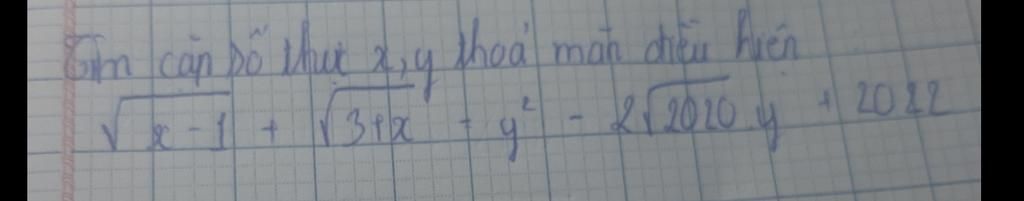 Tìm cặp số thực x, y thoả mãn điều kiện
√x - 1 + √3 + x = y² - 2√2020 y + 2022